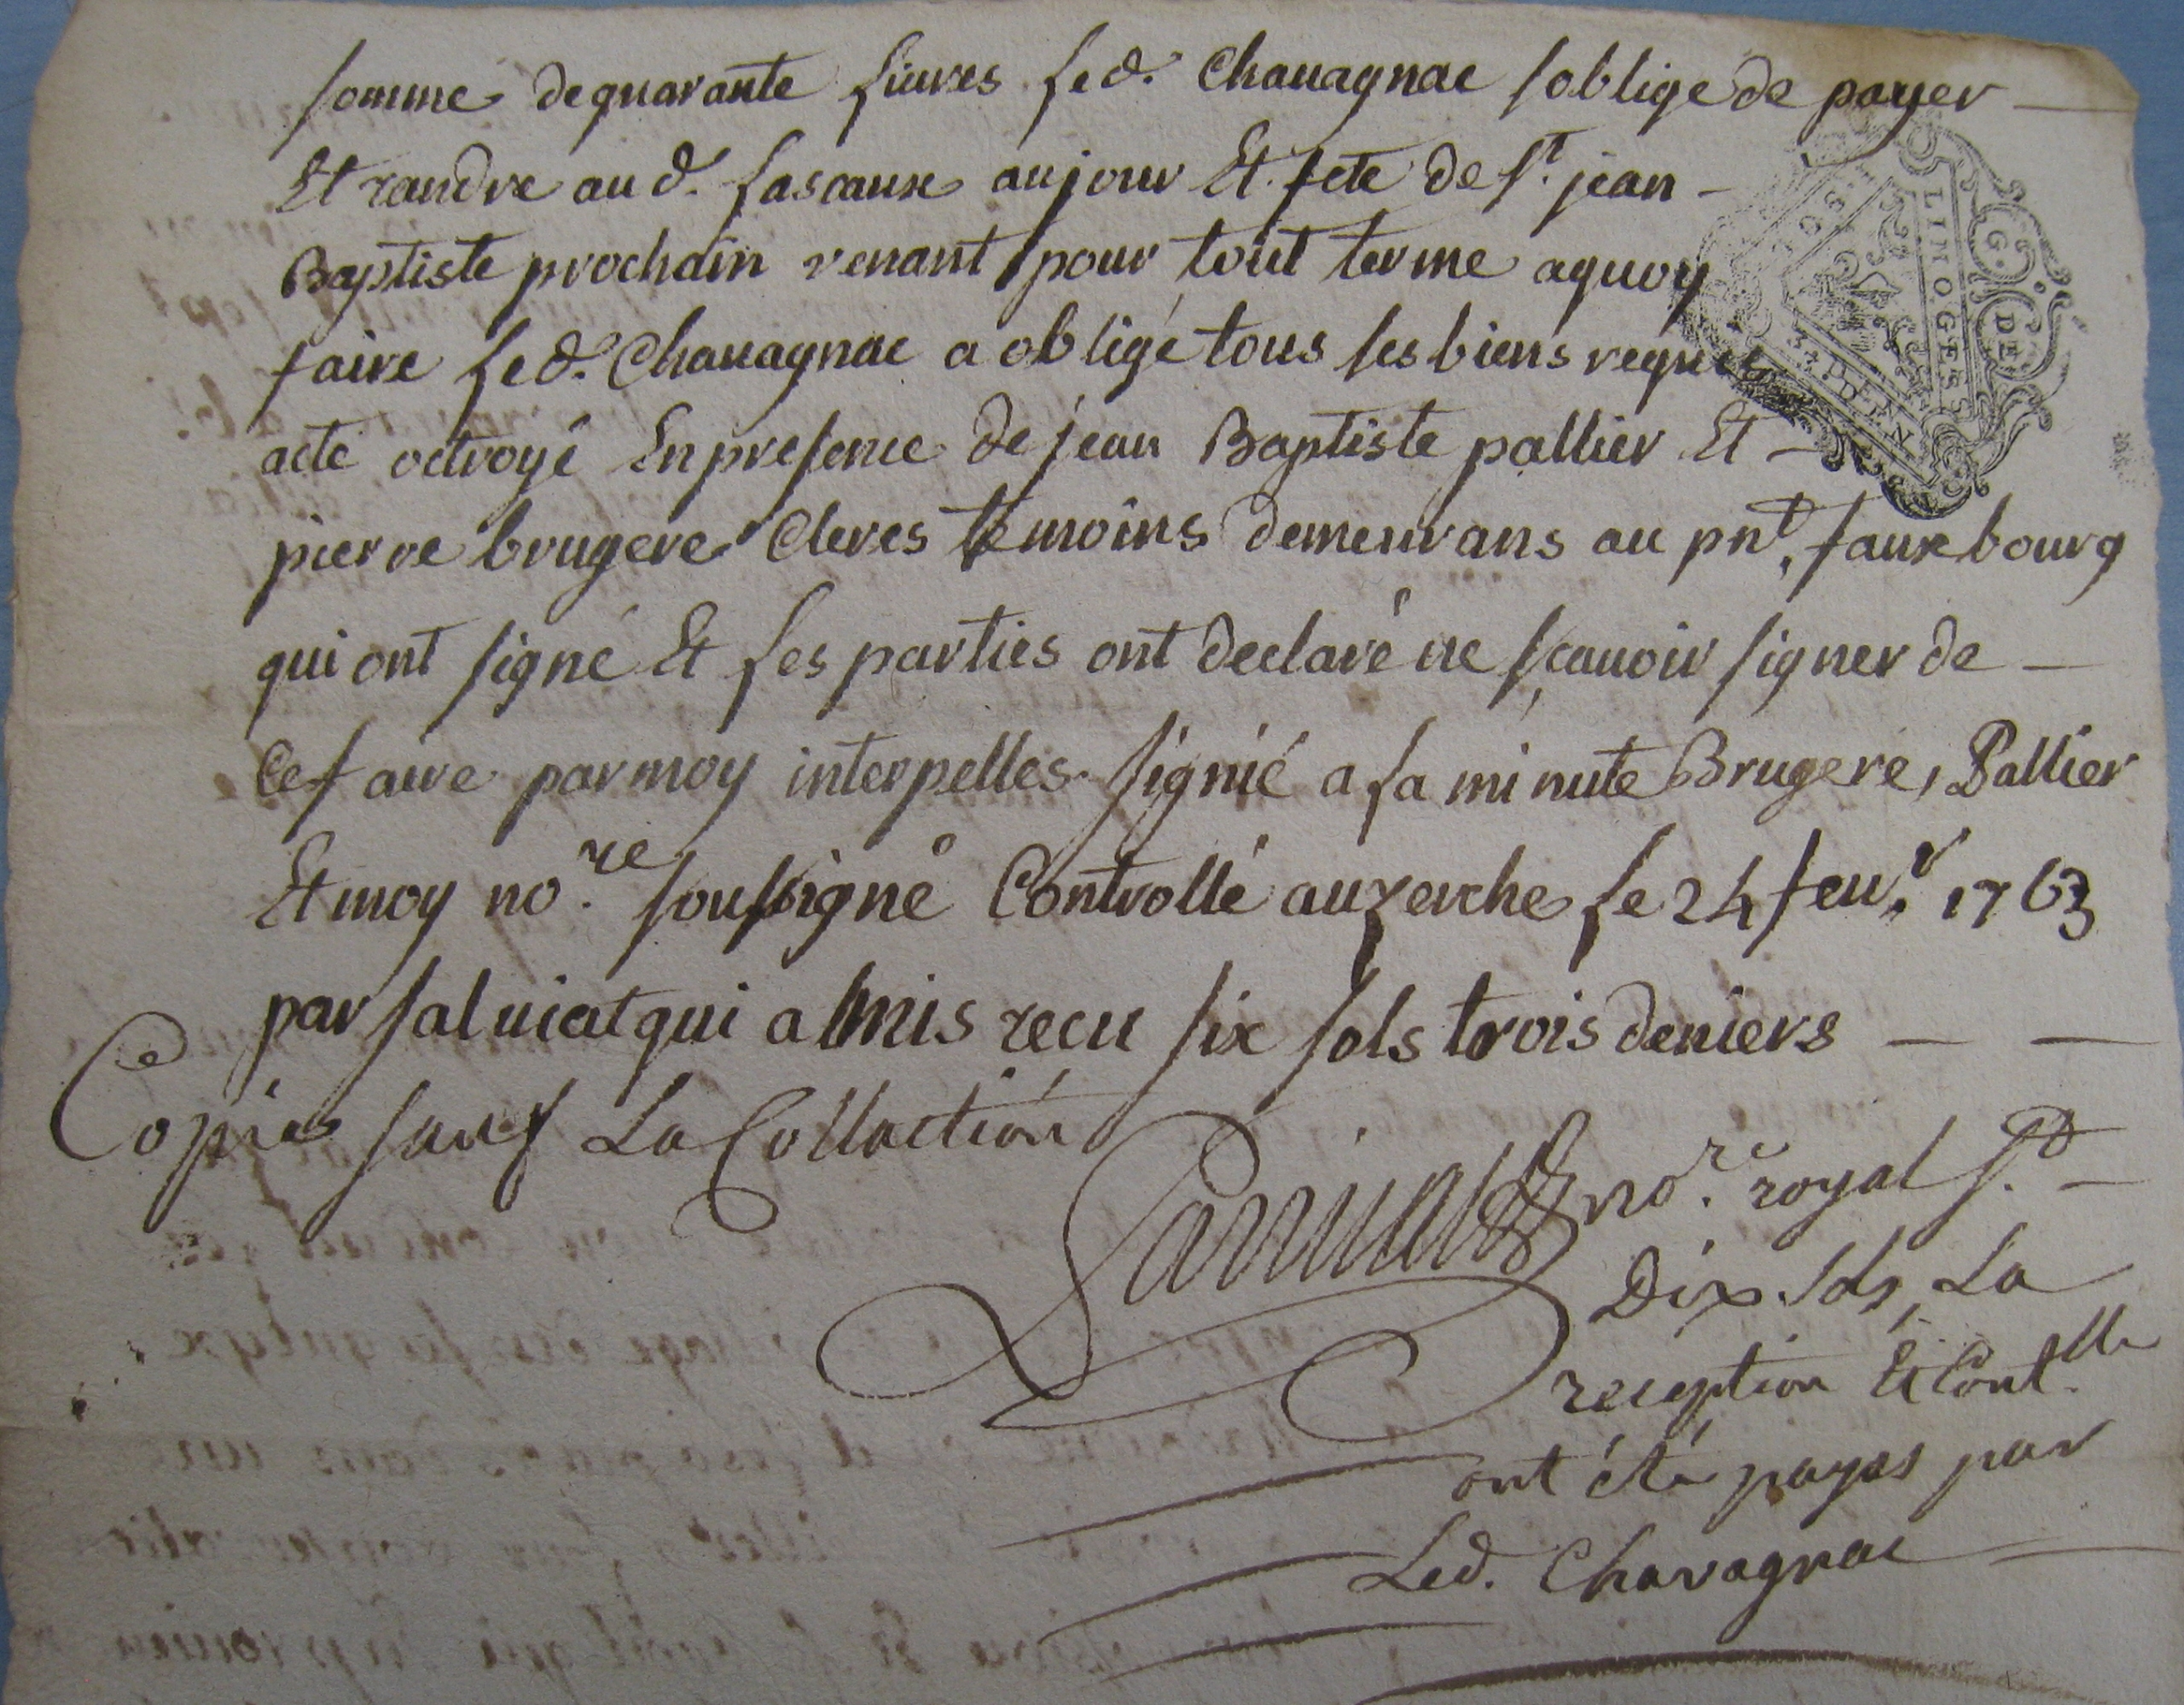 somme de quarante livres led. Chauagnac soblige de payer
Et randre aud. lascaux au jour Et fete de st. jean
Baptiste prochain venant pour tout terme aquoy
faire led. Chauagnac a obligé tous ses biens requis
acte octroyé En presence de jean Baptiste pallier Et
pierre brugere Clercs temoins demeurans au pnt. fauxbourg
qui ont signé Et les parties ont declaré ne sçauoir signer de
Ce faire par moy interpelles. signié a la minute Brugere, Pallier
Et moy no.re soussigné Controllé auzerche le 24 feur. 1763
par saluiat qui a mis recu six sols trois deniers
Copies sauf La Collaction
no.re royal
Dix sols, La
reception Et Cont.lle
ont été payes par
Led. Chavagnac
G. DE
LIMOGES
SOS
DEN